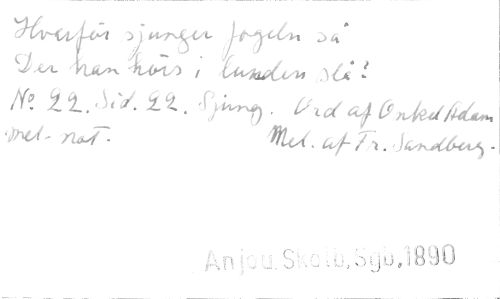 Hvarför sjunger fogeln så
Der han hörs i lunden slå?
No. 22. Sid. 22. Sjung. Ord af Onkel Adam
mel. not. Mel. af Fr. Sandberg.
Anjou, Skolb, Sgb, 1890